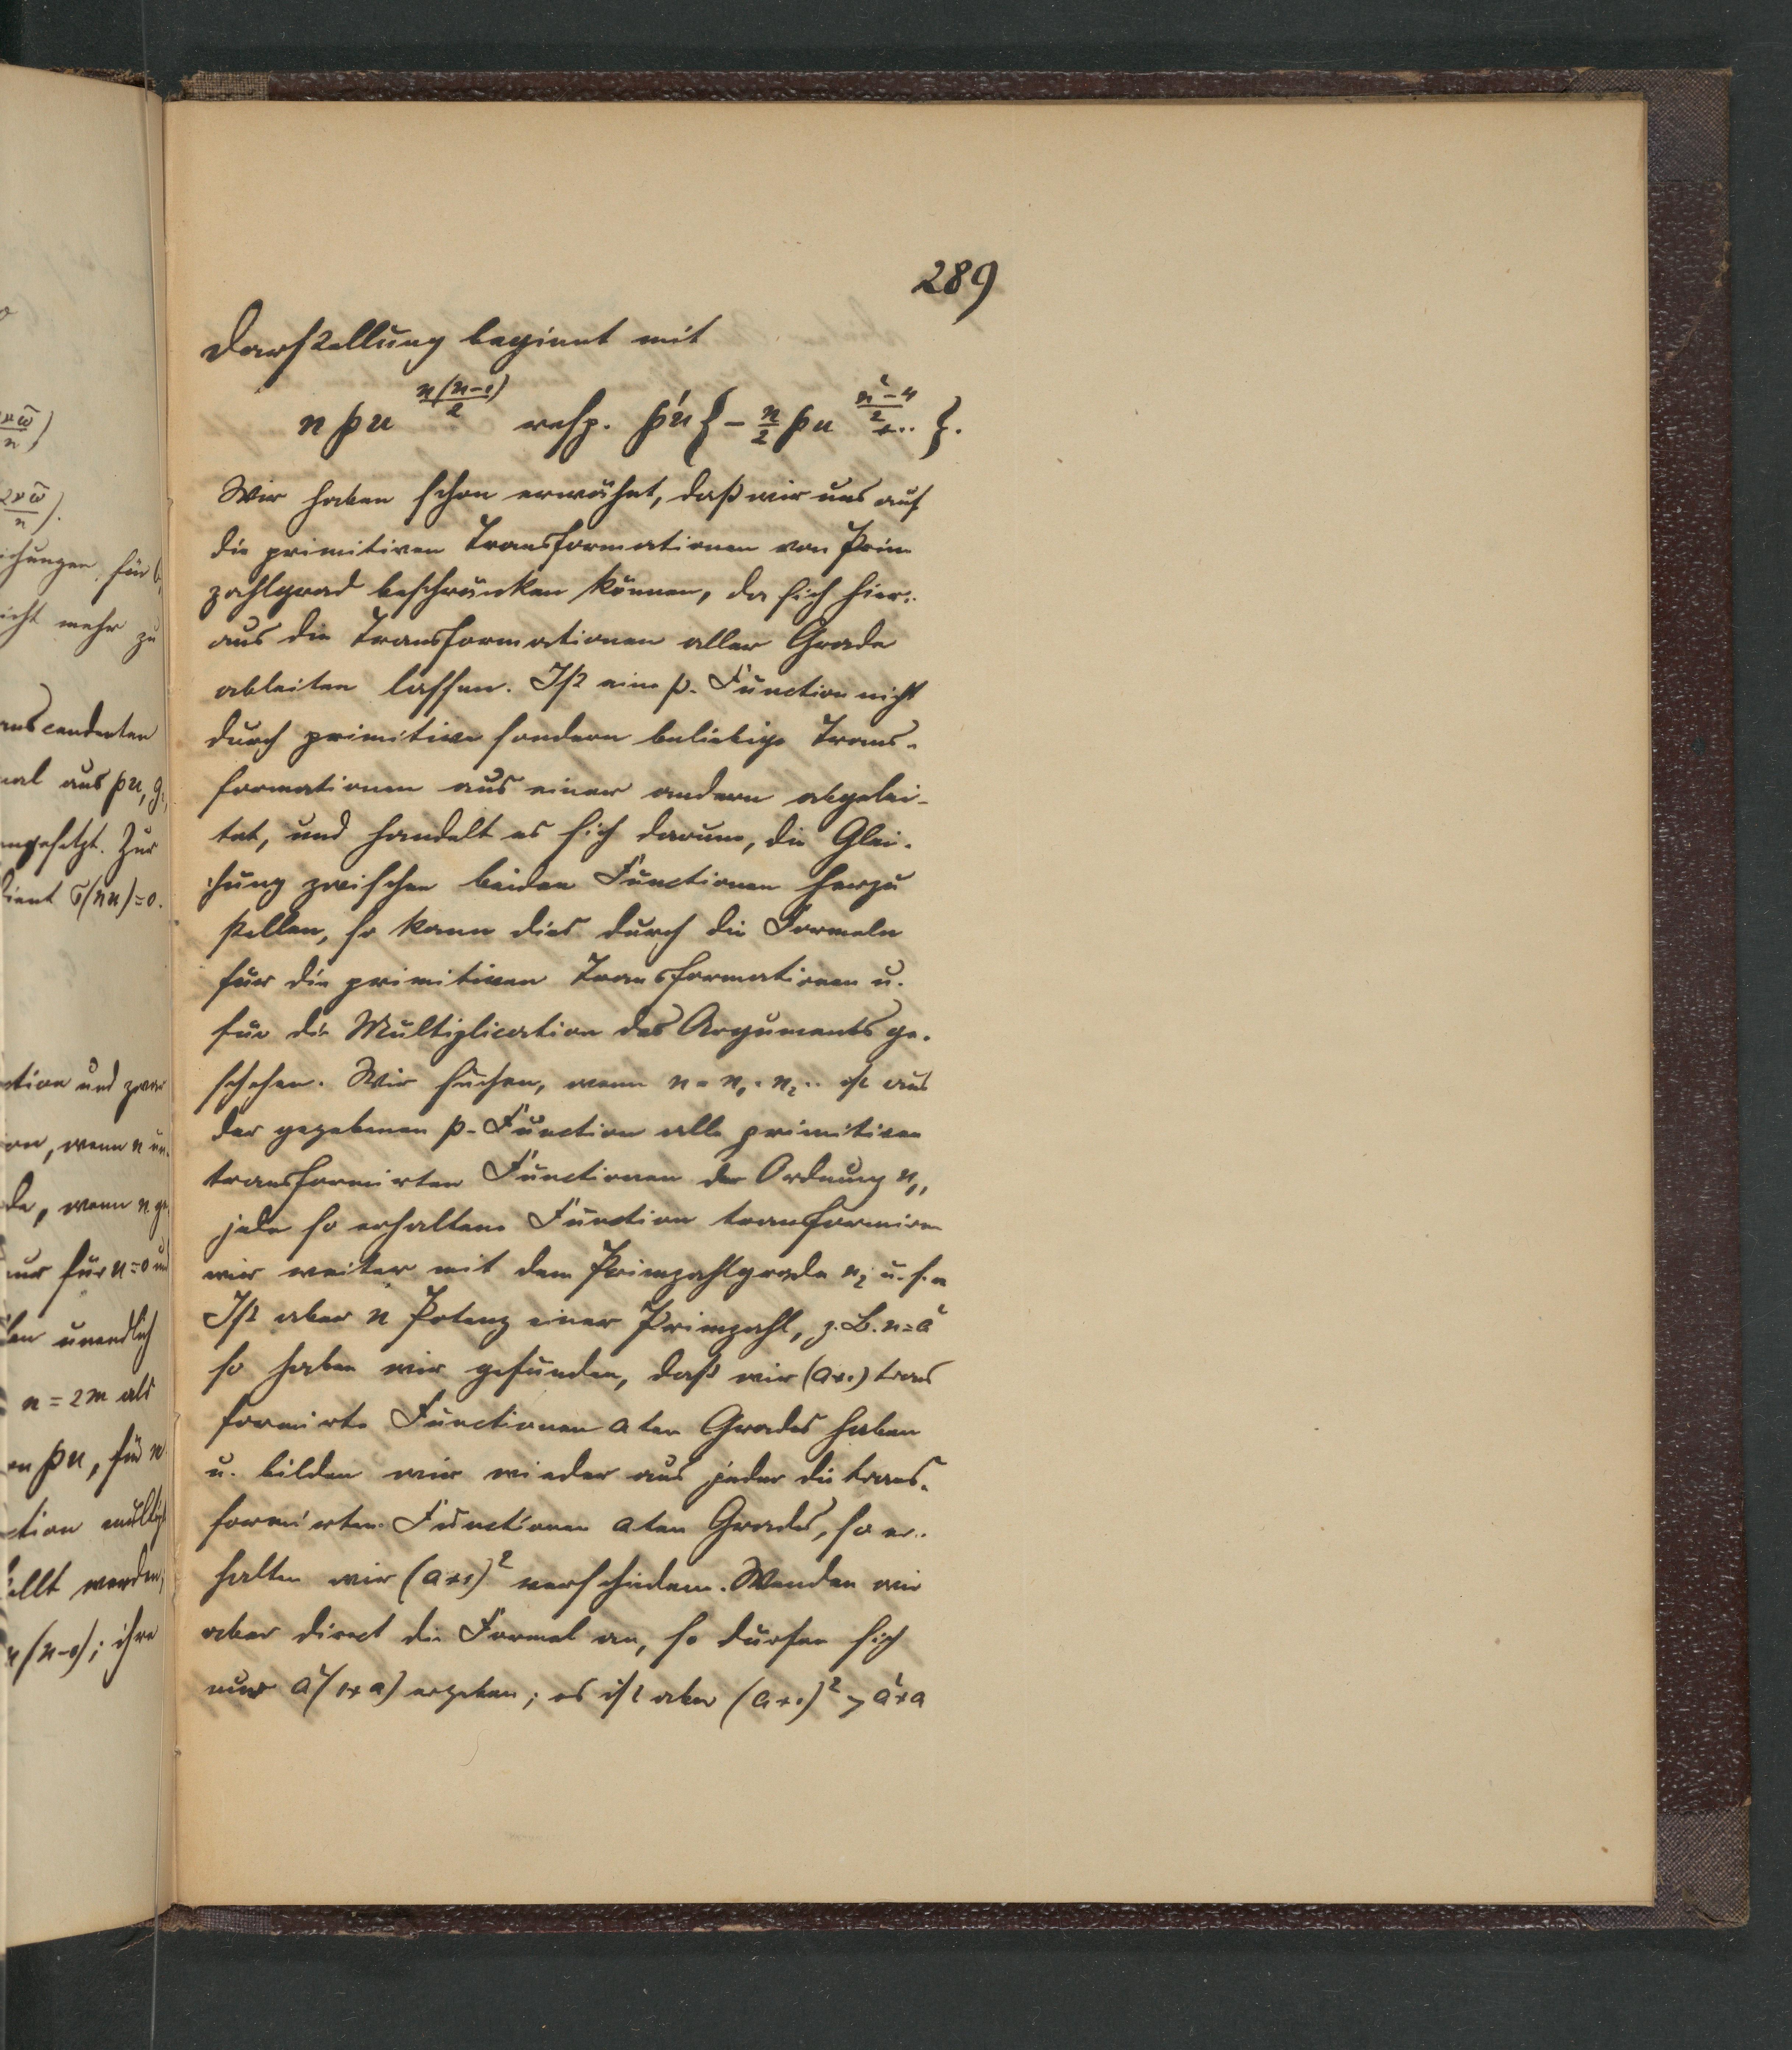 289
Darstellung beginnt mit
n ℘u^{n(n-1)/2} resp. ℘'u {- n/2 ℘u^{(n²-4)/2} + .. }.
Wir haben schon erwähnt, daß wir uns auf
die primitiven Transformationen von Prim
zahlgrad beschränken können, da sich hier-
aus die Transformationen aller Grade
ableiten lassen. Ist eine ℘-Function nicht
durch primitive sondern beliebige Trans-
formationen aus einer andern abgelei-
tet, und handelt es sich darum, die Glei-
chung zwischen beiden Functionen herzu
stellen, so kann dies durch die Formeln
für die primitiven Transformationen u.
für die Multiplication des Arguments ge-
schehen. Wir suchen, wenn n = n₁ · n₂ .. ist aus
der gegebenen ℘-Function alle primitiven
transformirten Functionen der Ordnung n₁,
jede so erhaltene Function transformiren
wir weiter mit dem Primzahlgrade n₂ u. s. w
Ist aber n Potenz einer Primzahl, z. B. n = a²
so haben wir gefunden, daß wir (a+1) trans
formirte Functionen aten Grades haben
u. bilden wir wieder aus jeder die trans-
formirten Functionen aten Grades, so er-
halten wir (a+1)² verschiedene. Wenden wir
aber direct die Formel an, so dürfen sich
nur a(1+a) ergeben; es ist aber (a+1)² > a²+a
icht mehr zu
nal aus ℘u, g
engesetzt. Zur
dient σ(nu)=0.
ction und zwar
on, wenn n un-
de, wenn n ge
nur für u=0 und
len unendlich
n = 2m als
en ℘u, für n
ction multipl
ellt werden,
n(n-1); ihre